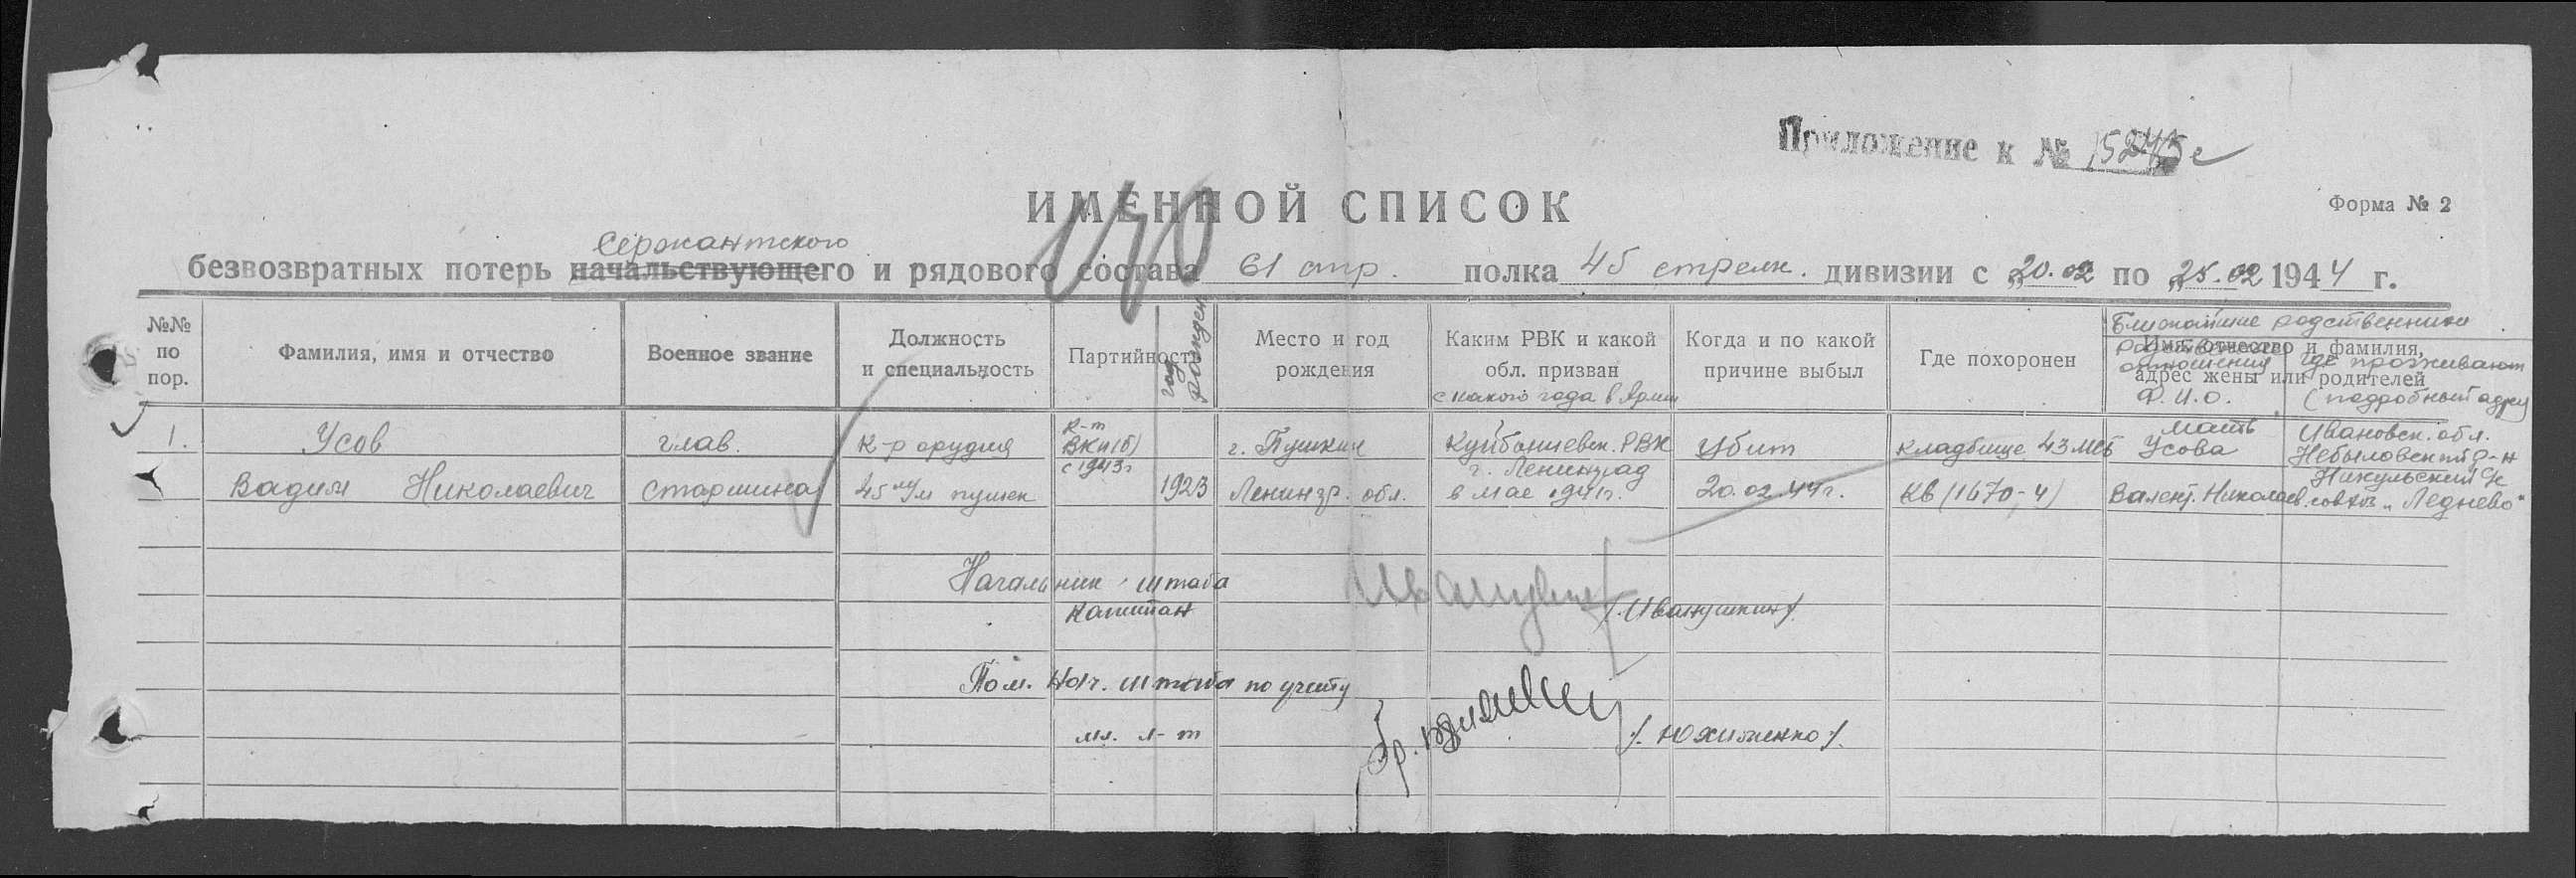 Приложение к № 15245с
ИМЕННОЙ СПИСОК
140
Форма № 2
Сержантского
безвозвратных потерь начальствующего и рядового состава 61 стр. полка 45 стрелк. дивизии с „20.02 по „25.02 1944 г.
№№ по пор.
Фамилия, имя и отчество
Военное звание
Должность и специальность
Партийность
год рожден.
Место и год рождения
Каким РВК и какой обл. призван
с какого года в Армии
Когда и по какой причине выбыл
Где похоронен
Ближайшие родственники
Имя, отчество и фамилия, адрес жены или родителей
Родственные отношения Ф.И.О.
где проживают (подробный адрес
1.
Усов
Вадим Николаевич
глав.
старшина
к-р орудия
45 м/м пушек
к-т
ВКП(б)
с 1943г
1923
г. Пушкин
Ленингр. обл.
Куйбышевск. РВК
г. Ленинград
в мае 1941г.
Убит
20.02.44г.
кладбище 43 МСБ
КВ (1670-4)
мать
Усова
Валент. Николаев.
Ивановск. обл.
Небыловский р-н
Никульский с/с
совхоз „Леднево"
Начальник штаба
капитан
/Иванушкин/
Пом. нач. штаба по учету
мл. л-т
/Юхименко/